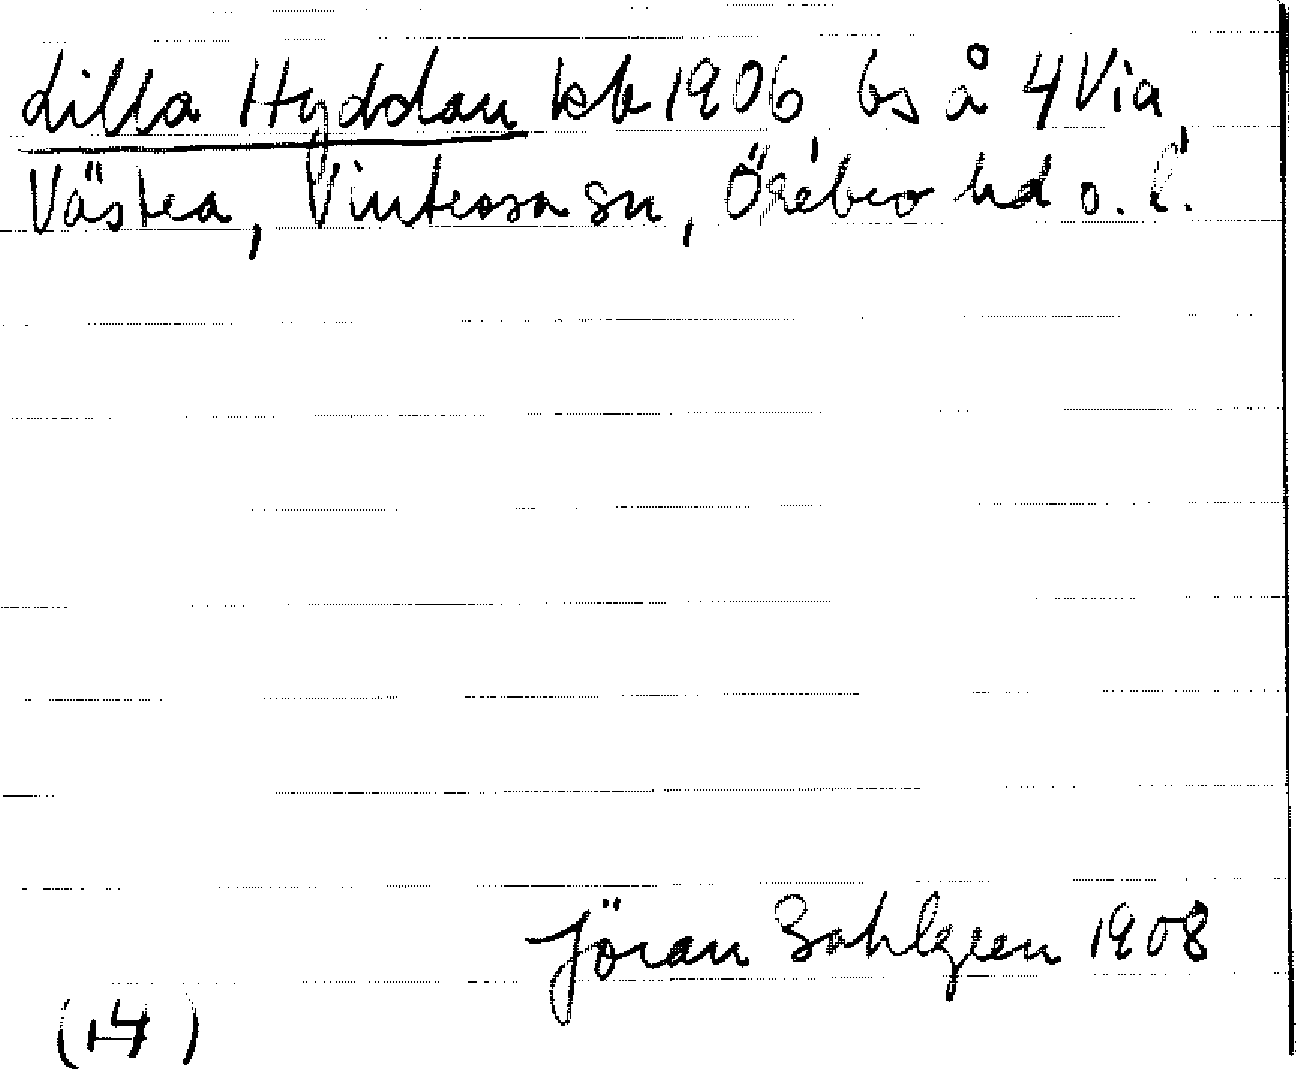 Lilla Hyddan kb 1906, bs å 4 Via
Västra, Vintrosa sn, Örebro hd o. l.
Jöran Sahlgren 1908
(14)